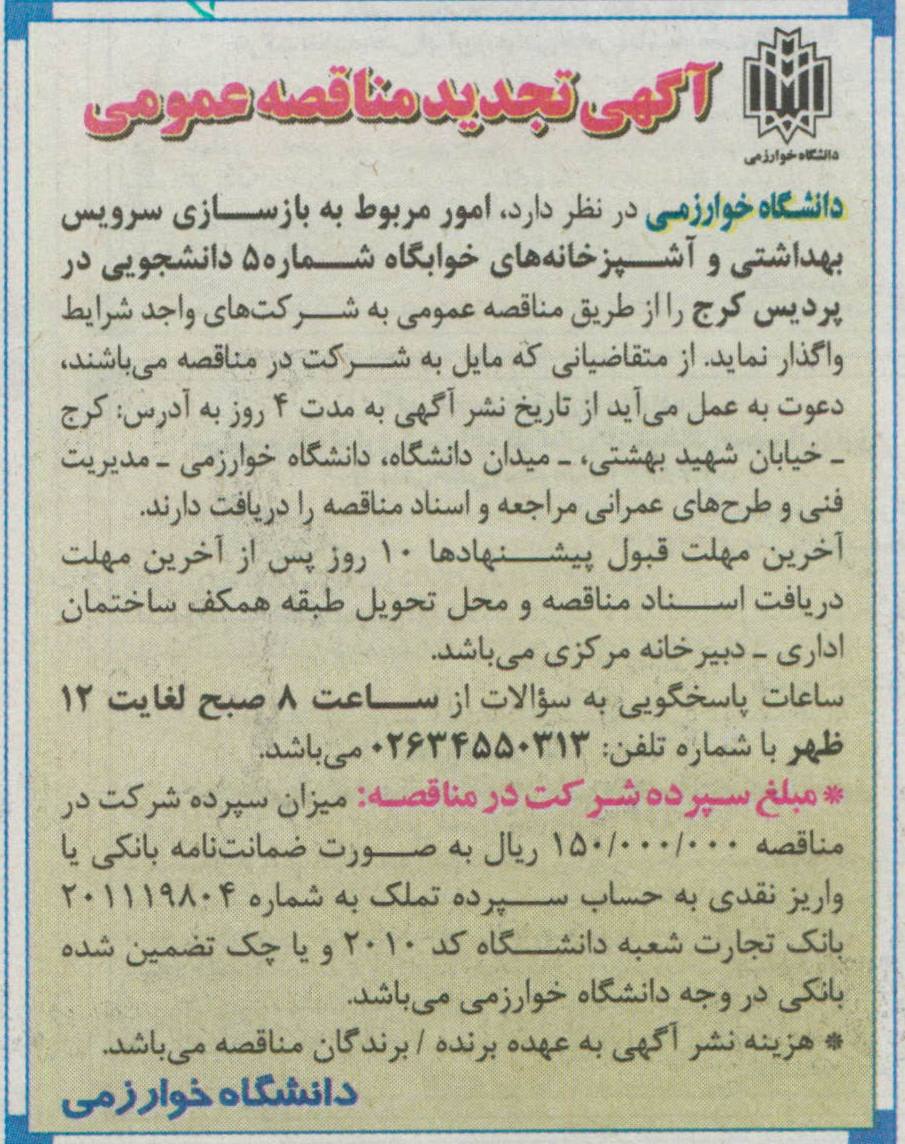 دانشگاه خوارزمی
آگهی تجدید مناقصه عمومی
دانشگاه خوارزمی در نظر دارد، امور مربوط به بازسازی سرویس
بهداشتی و آشپزخانه‌های خوابگاه شماره۵ دانشجویی در
پردیس کرج را از طریق مناقصه عمومی به شرکت‌های واجد شرایط
واگذار نماید. از متقاضیانی که مایل به شرکت در مناقصه می‌باشند،
دعوت به عمل می‌آید از تاریخ نشر آگهی به مدت ۴ روز به آدرس: کرج
ـ خیابان شهید بهشتی، ـ میدان دانشگاه، دانشگاه خوارزمی ـ مدیریت
فنی و طرح‌های عمرانی مراجعه و اسناد مناقصه را دریافت دارند.
آخرین مهلت قبول پیشنهادها ۱۰ روز پس از آخرین مهلت
دریافت اسناد مناقصه و محل تحویل طبقه همکف ساختمان
اداری ـ دبیرخانه مرکزی می‌باشد.
ساعات پاسخگویی به سؤالات از ساعت ۸ صبح لغایت ۱۲
ظهر با شماره تلفن: ۰۲۶۳۴۵۵۰۳۱۳ می‌باشد.
* مبلغ سپرده شرکت در مناقصه: میزان سپرده شرکت در
مناقصه ۱۵۰/۰۰۰/۰۰۰ ریال به صورت ضمانت‌نامه بانکی یا
واریز نقدی به حساب سپرده تملک به شماره ۲۰۱۱۱۹۸۰۴
بانک تجارت شعبه دانشگاه کد ۲۰۱۰ و یا چک تضمین شده
بانکی در وجه دانشگاه خوارزمی می‌باشد.
* هزینه نشر آگهی به عهده برنده / برندگان مناقصه می‌باشد.
دانشگاه خوارزمی